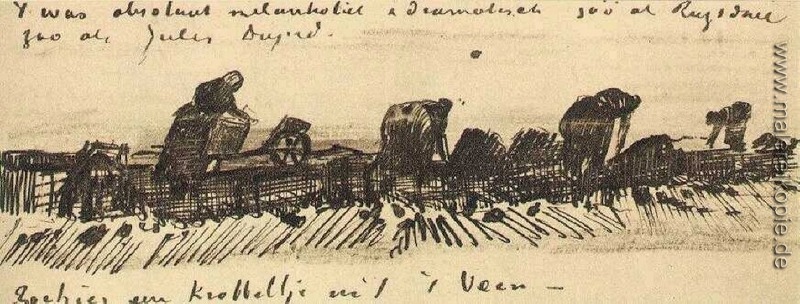 't was absoluut melankoliek & dramatisch zoo als Ruysdael
zoo als Jules Dupré.
Zoehier een krabbeltje uit 't Veen —
www.malereikopie.de